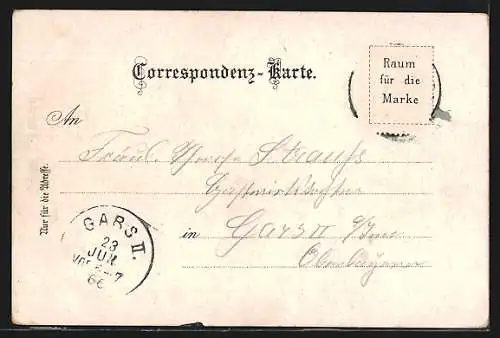 Correspondenz-Karte.
Raum
für die
Marke
An
Fräul. Strauß
in Gars II a/Inn
Oberbayern
Nur für die Adresse.
GARS II.
23
JUN